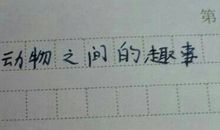 第
动物之间的趣事